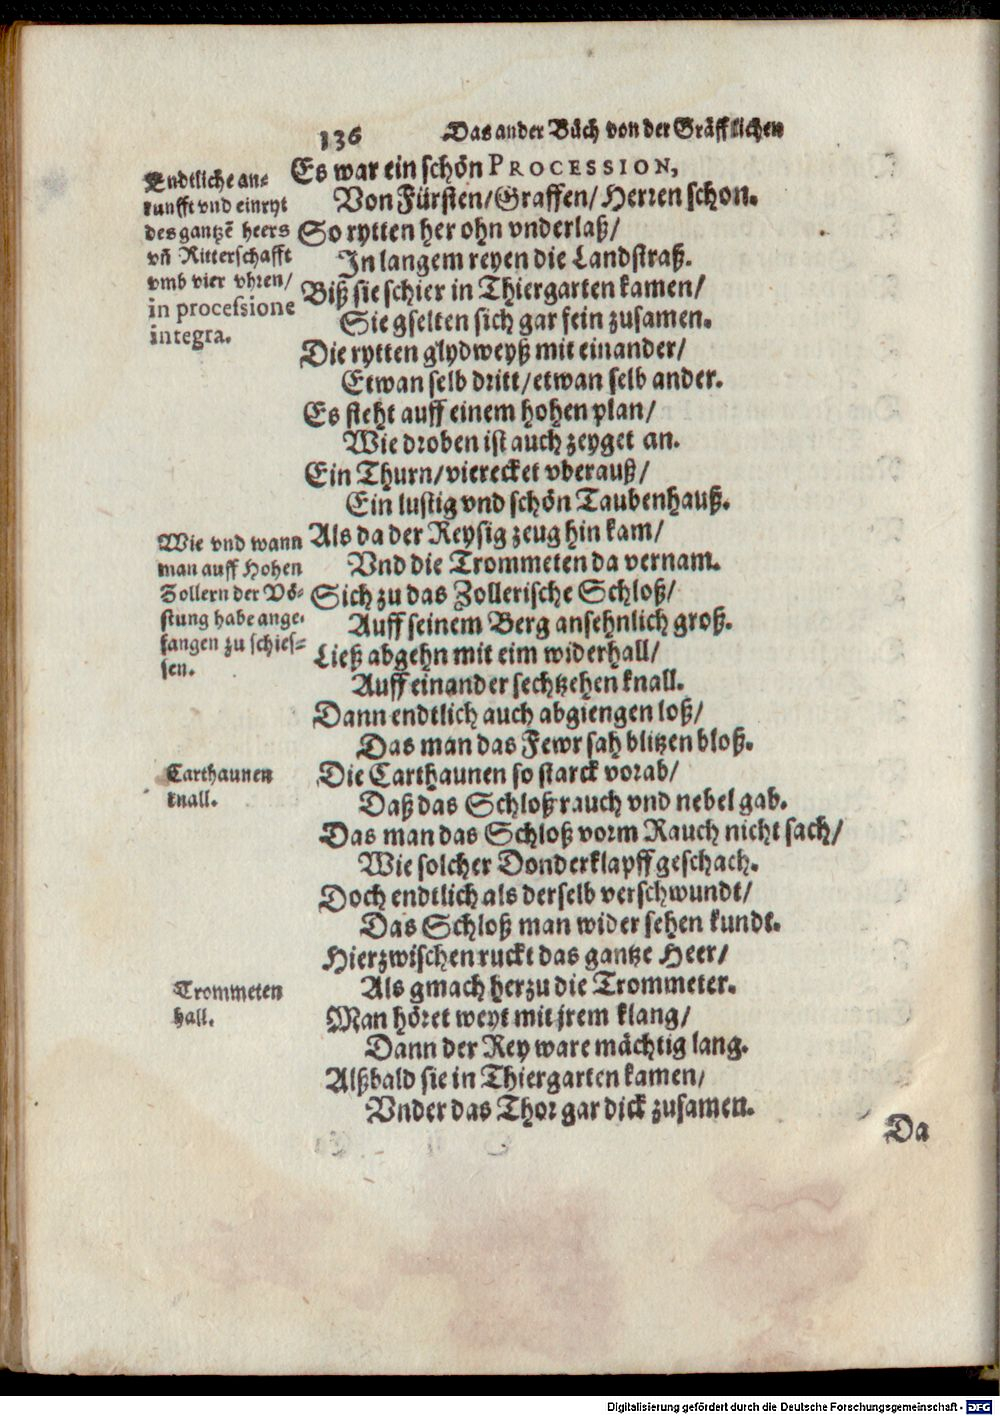 136 Das ander Bůch von der Gräfflichen
Endtliche an⸗
kunfft vnd einryt
des gantzē heers
vn̄ Ritterschafft
vmb vier vhren/
in processione
integra.
Es war ein schön PROCESSION,
Von Fürsten/Graffen/Herren schon.
So rytten her ohn vnderlaß/
In langem reyen die Landstraß.
Biß sie schier in Thiergarten kamen/
Sie gselten sich gar fein zusamen.
Die rytten glydweyß mit einander/
Etwan selb dritt/etwan selb ander.
Es steht auff einem hohen plan/
Wie droben ist auch zeyget an.
Ein Thurn/vierecket vberauß/
Ein lustig vnd schön Taubenhauß.
Wie vnd wann
man auff Hohen
Zollern der Vö⸗
stung habe ange⸗
fangen zu schies⸗
sen.
Als da der Reysig zeug hin kam/
Vnd die Trommeten da vernam.
Sich zu das Zollerische Schloß/
Auff seinem Berg ansehnlich groß.
Ließ abgehn mit eim widerhall/
Auff einander sechtzehen knall.
Dann endtlich auch abgiengen loß/
Das man das Fewr sah blitzen bloß.
Carthaunen
knall.
Die Carthaunen so starck vorab/
Daß das Schloß rauch vnd nebel gab.
Das man das Schloß vorm Rauch nicht sach/
Wie solcher Donderklapff geschach.
Doch endtlich als derselb verschwundt/
Das Schloß man wider sehen kundt.
Hierzwischen ruckt das gantze Heer/
Als gmach herzu die Trommeter.
Trommeten
hall.
Man höret weyt mit jrem klang/
Dann der Rey ware mächtig lang.
Alßbald sie in Thiergarten kamen/
Vnder das Thor gar dick zusamen.
Da
Digitalisierung gefördert durch die Deutsche Forschungsgemeinschaft - DFG